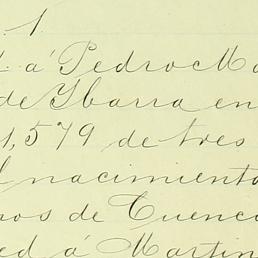 1
á Pedro Ma
de Ybarra en
1,579 de tres
l nacimiento
nos de Cuenc
ed á Martin